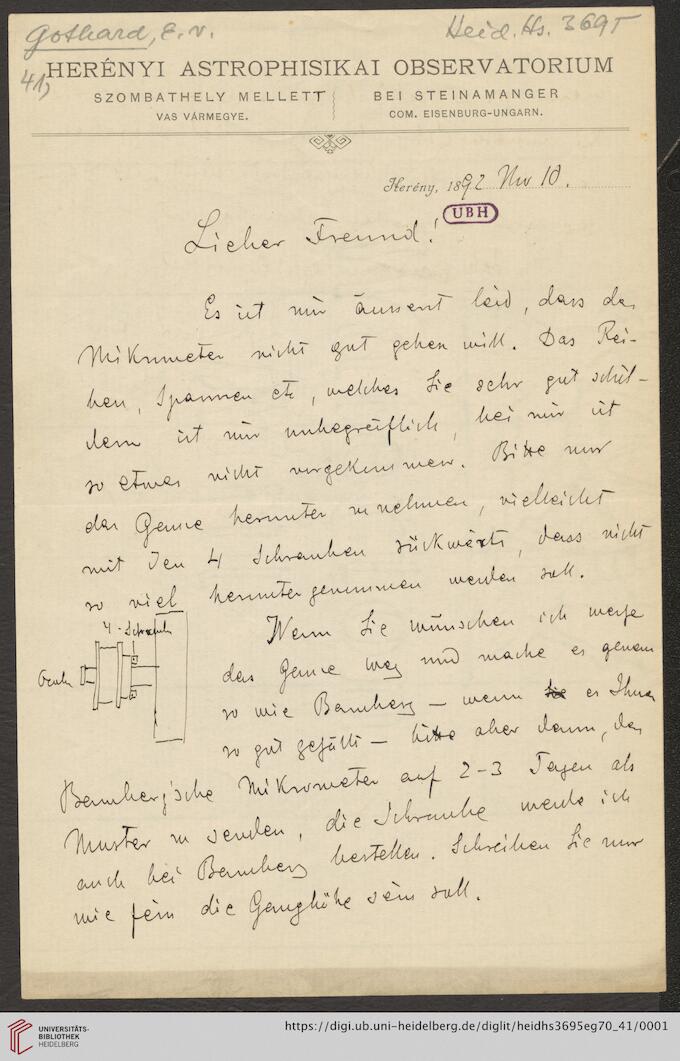 Gothard, E. v.
Heid. Hs. 3695
41)
HERÉNYI ASTROPHISIKAI OBSERVATORIUM
SZOMBATHELY MELLETT
BEI STEINAMANGER
VAS VÁRMEGYE.
COM. EISENBURG-UNGARN.
Herény, 1892 Nov 10.
UBH
Lieber Freund!
Es ist mir äusserst leid, dass das
Mikrometer nicht gut gehen will. Das Rei-
ben, Spannen etc, welches Sie sehr gut schil-
dern ist mir unbegreiflich, bei mir ist
so etwas nicht vorgekommen. Bitte nur
das Ganze herunter zu nehmen, vielleicht
mit den 4 Schrauben rückwärts, dass nicht
so viel heruntergenommen werden soll.
4 - Schrauben
Ocular
Wenn Sie wünschen ich werfe
das Ganze weg und mache es genau
so wie Bamberg — wenn es Ihnen
so gut gefällt — bitte aber dann, das
Bamberg'sche Mikrometer auf 2-3 Tagen als
Muster zu senden, die Schraube werde ich
auch bei Bamberg bestellen. Schreiben Sie nur
wie fein die Ganghöhe sein soll.
UNIVERSITÄTS-
BIBLIOTHEK
HEIDELBERG
https://digi.ub.uni-heidelberg.de/diglit/heidhs3695eg70_41/0001